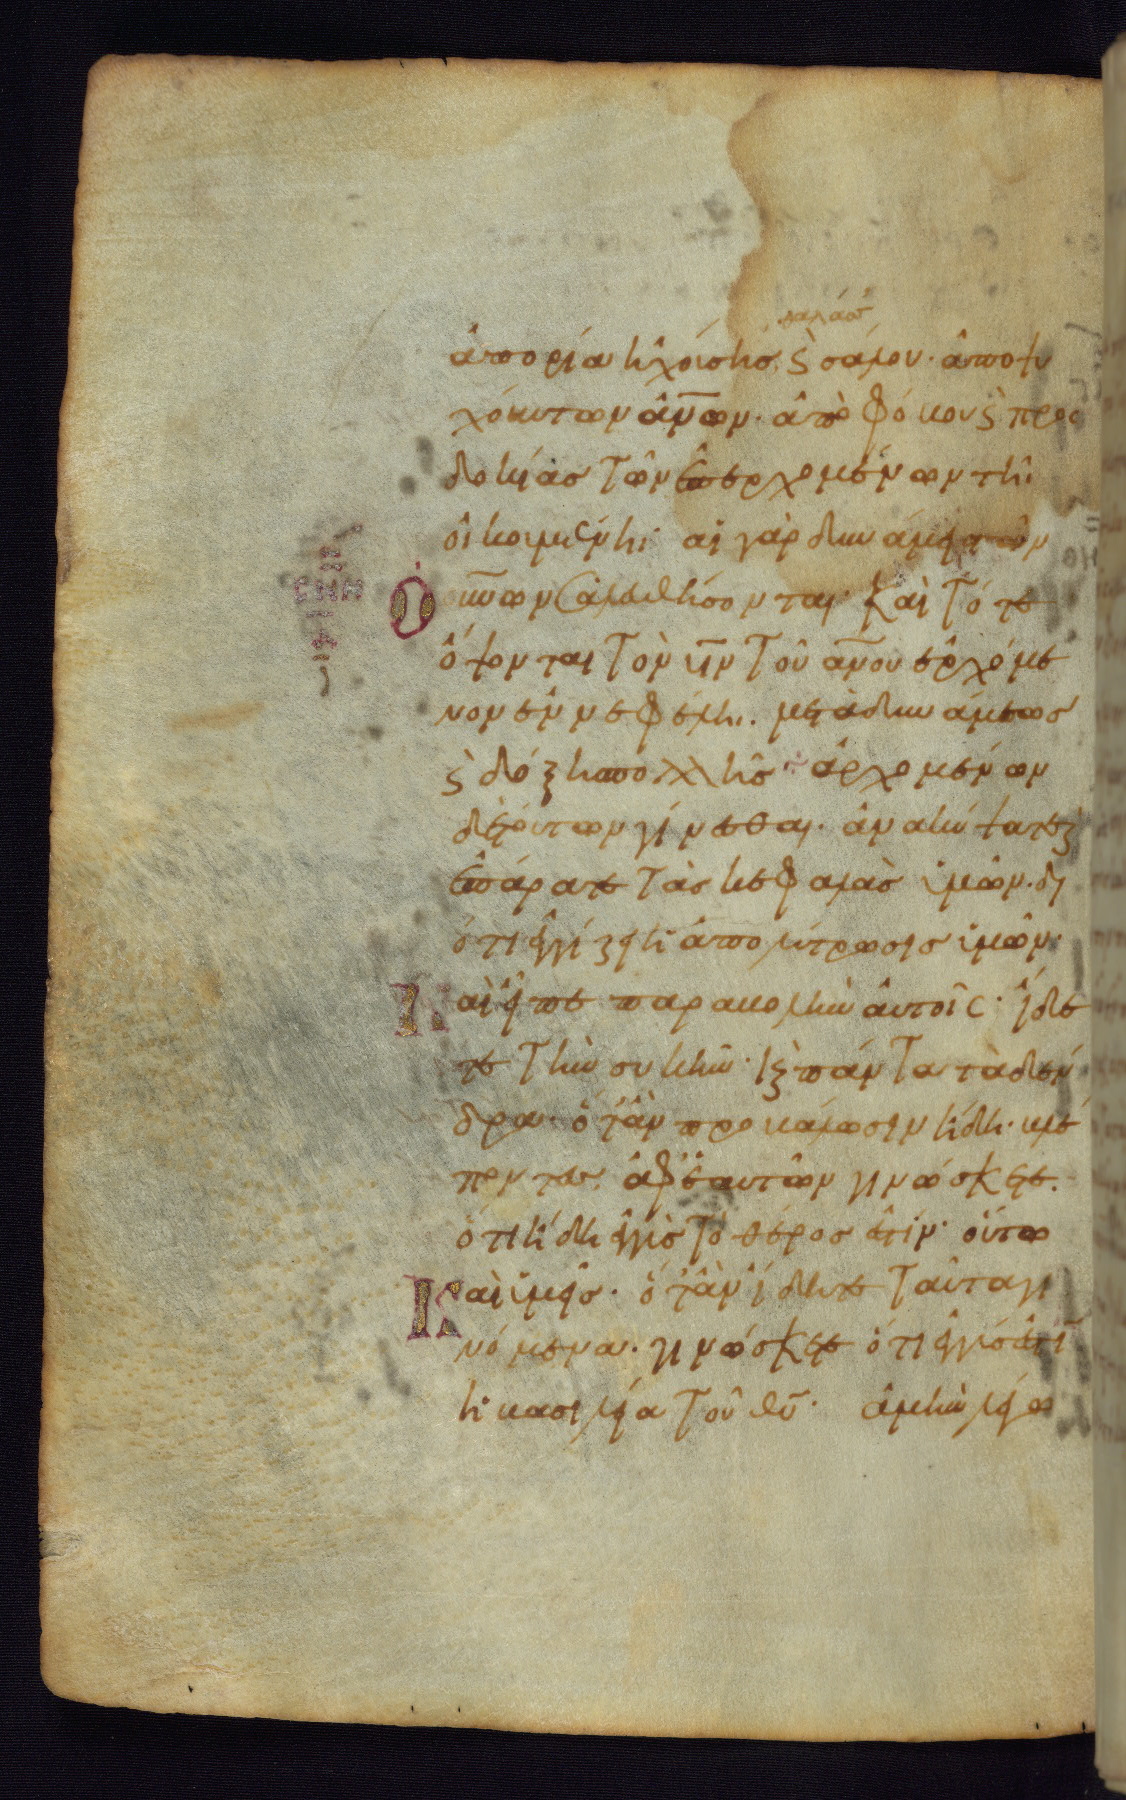 θαλάσ
ἀπορία ἠχούσης ϛ σάλου· ἀποψυ
χόντων ἀν̅ων· ἀπὸ φόβου ϛ προσ
δοκίας τῶν ἐπερχομένων τῆ
οἰκουμένη· αἱ γὰρ δυνάμεις τῶν
οὐνῶν σαλευθήσονται· καὶ τότε
ὄψονται τὸν υν̅ τοῦ ἀν̅ου ἐρχόμε
νον ἐν νεφέλη· μετὰ δυνάμεως
ϛ δόξης πολλῆς· ἀρχομένων
δὲ τούτων γίνεσθαι· ἀνακύψατε ϗ
ἐπάρατε τὰς κεφαλὰς ὑμῶν· δι
ότι ἐγγίζει ἡ ἀπολύτρωσις ὑμῶν·
Καὶ εἶπε παραβολὴν αὐτοῖς· ἴδε
τε τὴν συκῆν· ϗ πάντα τὰ δέν
δρα· ὅταν προβάλωσιν ἤδη· βλέ
ποντες ἀφ' ἑαυτῶν γινώσκετε·
ὅτι ἤδη ἐγγὺς τὸ θέρος ἐστίν· οὕτω
Καὶ ὑμεῖς· ὅταν ἴδητε ταῦτα γι
νόμενα· γινώσκετε ὅτι ἐγγύς ἐστι
ἡ βασιλεία τοῦ θυ̅· ἀμὴν λέγω